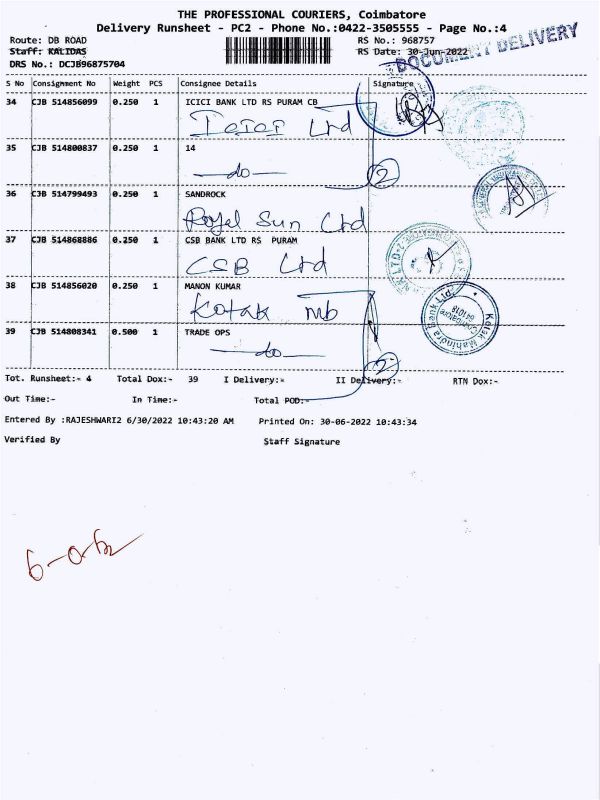 THE PROFESSIONAL COURIERS, Coimbatore
Delivery Runsheet - PC2 - Phone No.:0422-3505555 - Page No.:4
Route: DB ROAD
RS No.: 968757
Staff: KALIDAS
RS Date: 30-Jun-2022
DRS No.: DCJB96875704
DOCUMENT DELIVERY
S No Consignment No Weight PCS Consignee Details Signature
34 CJB 514856099 0.250 1 ICICI BANK LTD RS PURAM CB
Icici Ltd
35 CJB 514800837 0.250 1 14
-do-
2
36 CJB 514799493 0.250 1 SANDROCK
Royal Sun Ltd
37 CJB 514868886 0.250 1 CSB BANK LTD RS PURAM
CSB Ltd
38 CJB 514856020 0.250 1 MANON KUMAR
Kotak mb
Kotak Mahindra Bank Ltd.
Coimbatore
641018
39 CJB 514808341 0.500 1 TRADE OPS
-do-
2
Tot. Runsheet:- 4 Total Dox:- 39 I Delivery:- II Delivery:- RTN Dox:-
Out Time:- In Time:- Total POD:-
Entered By :RAJESHWARI2 6/30/2022 10:43:20 AM Printed On: 30-06-2022 10:43:34
Verified By Staff Signature